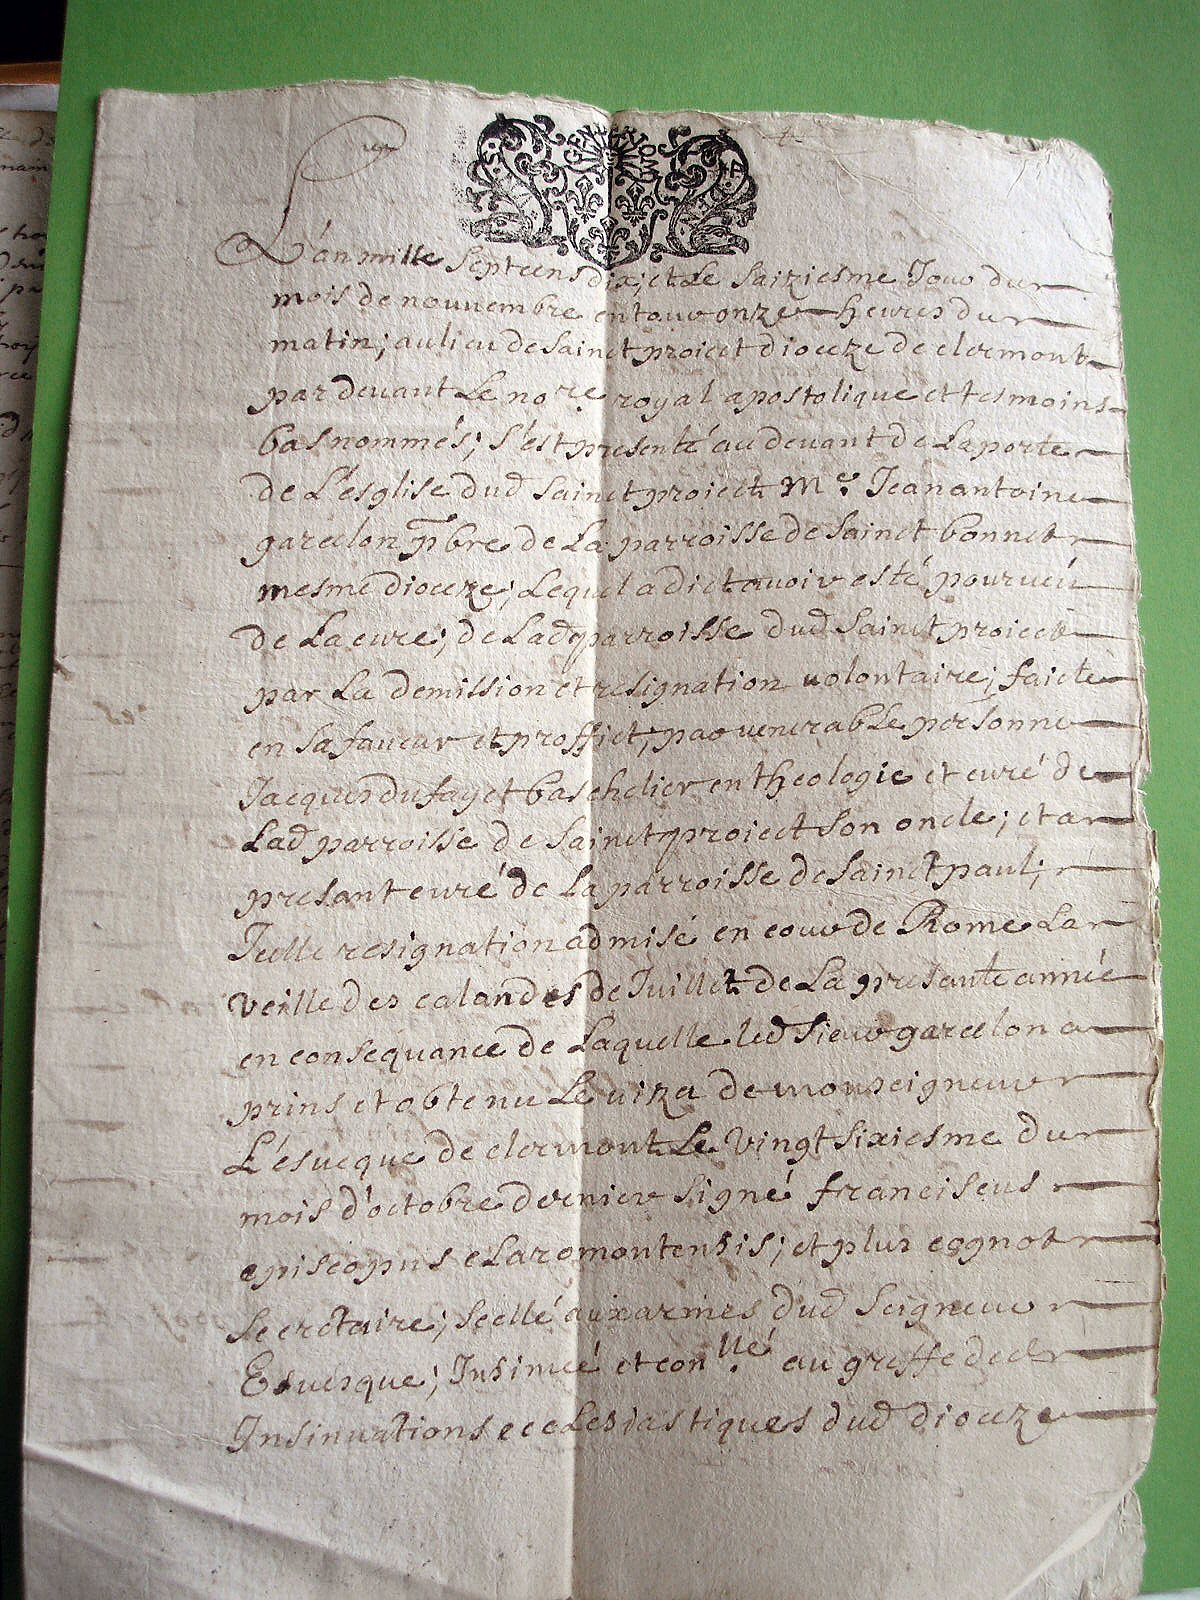 GEN RIOM
L'an mille septcens dix, et le saiziesme Jour du
mois de nouvembre entour onze heures du
matin; au lieu de Sainct proiect dioceze de clermont
par devant Le no.re royal apostolique et tesmoins
bas nommés; s'est presenté au devant de La porte
de L'esglise dud Sainct proiect M.e Jean antoine
garcelon pbre de La parroisse de Sainct bonnet
mesme dioceze; Lequel a dict avoir esté pourveü
de La cure; de Lad parroisse dud Sainct proiect
par La demission et resignation volontaire; faicte
en sa faveur et proffict; par venerable personne
Jacques dufayet baschelier en theologie et curé de
Lad parroisse de Sainct proiect son oncle; et a
presant curé de La parroisse de Sainct paul;
Jcelle resignation admisé en cour de Rome La
veille des calandes de Juillet de La presante année
en consequance de Laquelle led Sieur garcelon a
prins et obtenu Le viza de monseigneur
L'ésveque de clermont Le vingt sixiesme du
mois d'octobre dernier signé franciscus
episcopus claromontensis; et plus
secretaire; scellé aux armes dud Seigneur
Esvesque; Insinué et con.llé au greffe des
Insinuations ecclesiastiques dud dioceze